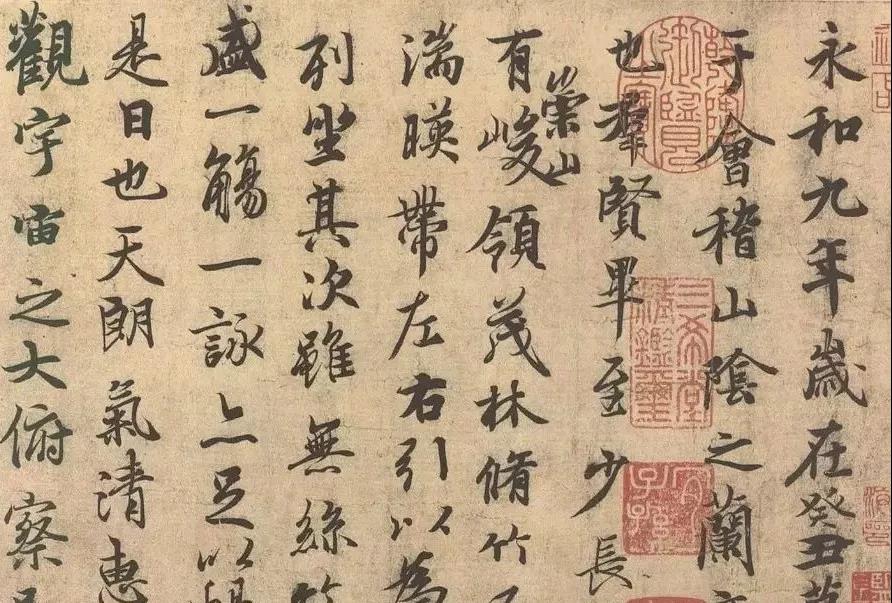 永和九年歲在癸丑暮
于會稽山陰之蘭亭
也羣賢畢至少長
有崇山峻領茂林脩竹又
湍暎帶左右引以為
列坐其次雖無絲竹
盛一觴一詠亦足以暢
是日也天朗氣清惠
觀宇宙之大俯察品
三希堂精鑑璽
宜子孫